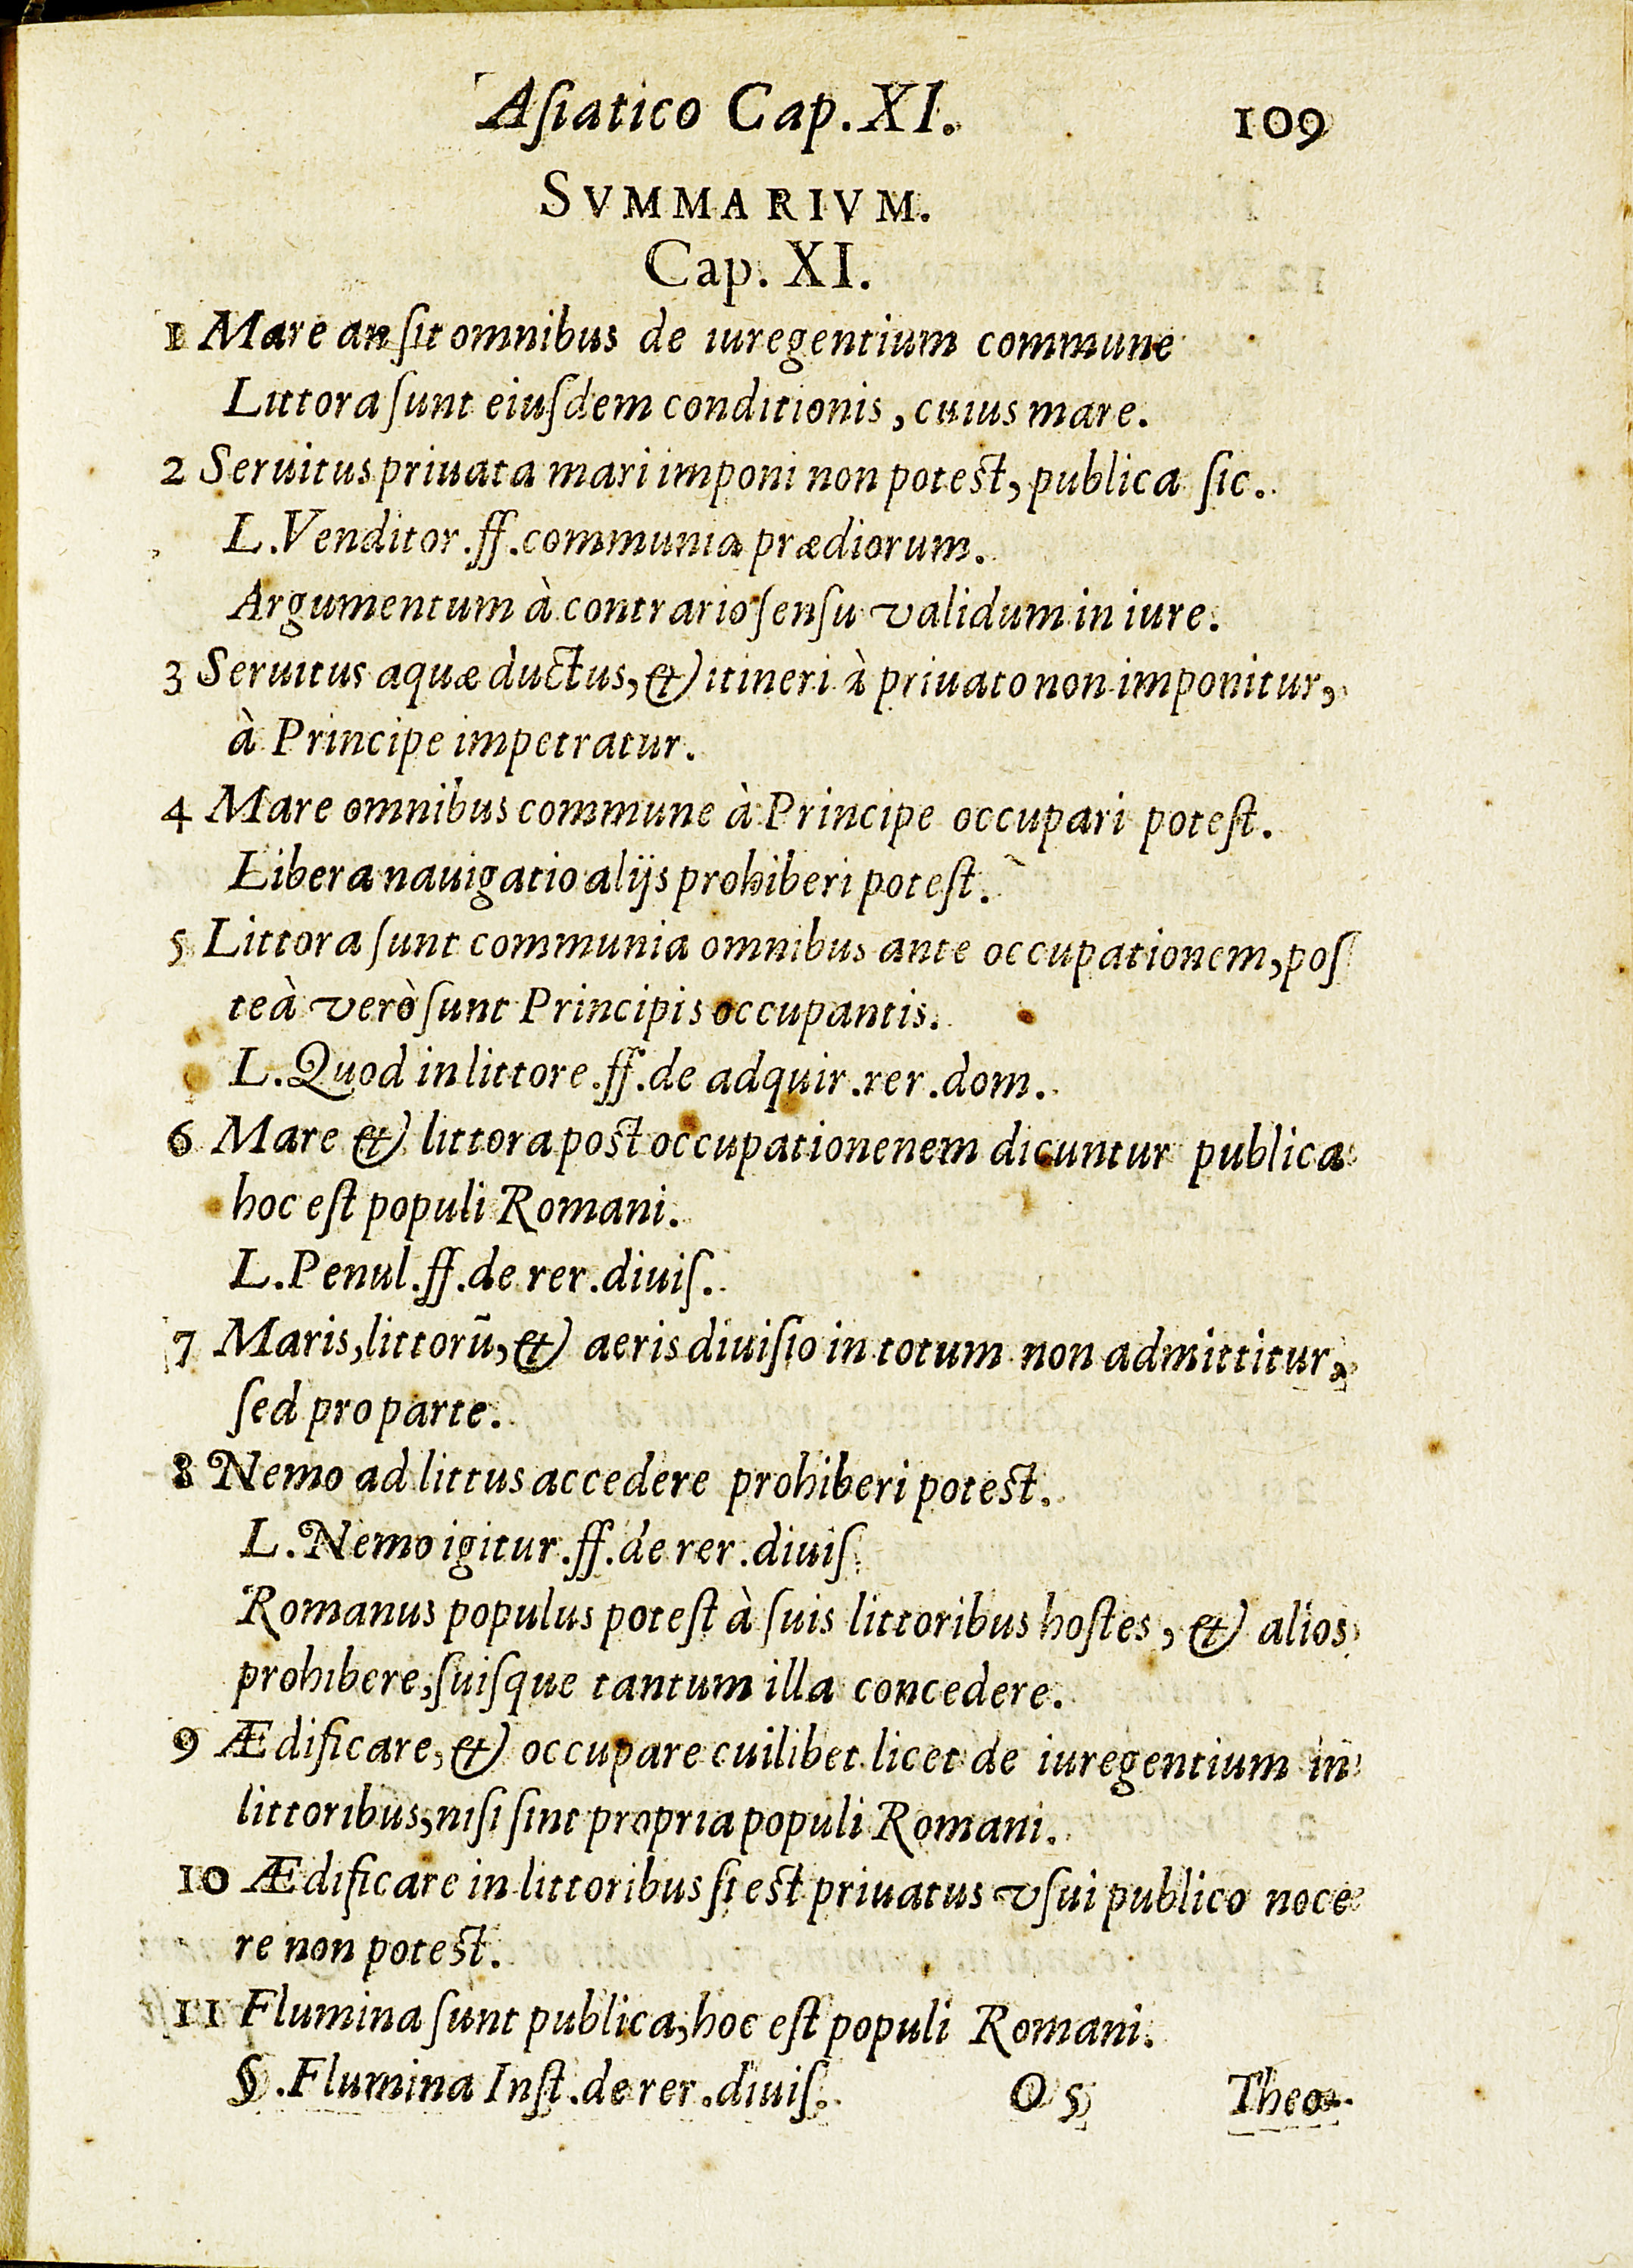 Aſiatico Cap. XI. 109
SVMMARIVM.
Cap. XI.
1 Mare an ſit omnibus de iure gentium commune
Littora ſunt eiuſdem conditionis, cuius mare.
2 Seruitus priuata mari imponi non potest, publica ſic.
L. Venditor. ff. communia prædiorum.
Argumentum à contrario ſenſu validum in iure.
3 Seruitus aquæ ductus, & itineri à priuato non imponitur,
à Principe impetratur.
4 Mare omnibus commune à Principe occupari poteſt.
Libera nauigatio alijs prohiberi poteſt.
5 Littora ſunt communia omnibus ante occupationem, poſ
teà verò ſunt Principis occupantis.
L. Quod in littore. ff. de adquir. rer. dom.
6 Mare & littora post occupationenem dicuntur publica
hoc eſt populi Romani.
L. Penul. ff. de rer. diuiſ.
7 Maris, littorū, & aeris diuiſio in totum non admittitur,
ſed pro parte.
8 Nemo ad littus accedere prohiberi potest.
L. Nemo igitur. ff. de rer. diuiſ.
Romanus populus poteſt à ſuis littoribus hoſtes, & alios
prohibere, ſuiſque tantum illa concedere.
9 Ædificare, & occupare cuilibet licet de iure gentium in
littoribus, niſi ſint propria populi Romani.
10 Ædificare in littoribus ſi est priuatus vſui publico noce
re non potest.
11 Flumina ſunt publica, hoc eſt populi Romani.
§. Flumina Inſt. de rer. diuiſ. O 5 Theo-